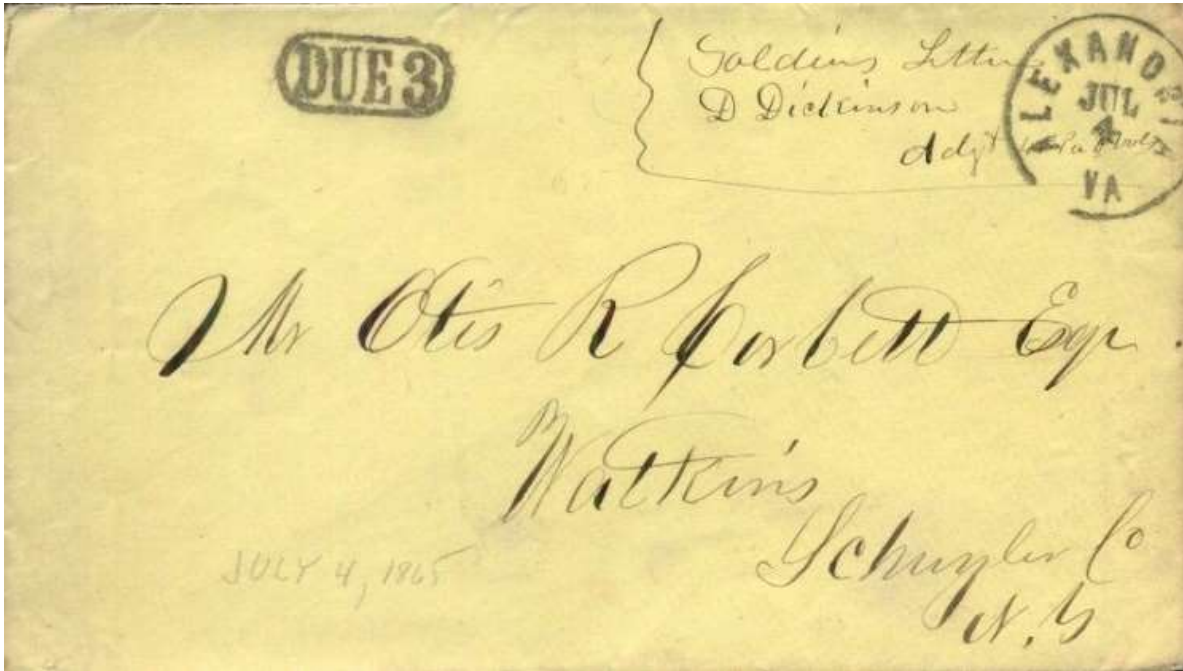 DUE 3
Soldiers Letter
D Dickinson
Adjt
ALEXANDRIA
JUL
4
VA
Mr Otis R Corbett Esqr.
Watkins
Schuyler Co
N.Y
JULY 4, 1865